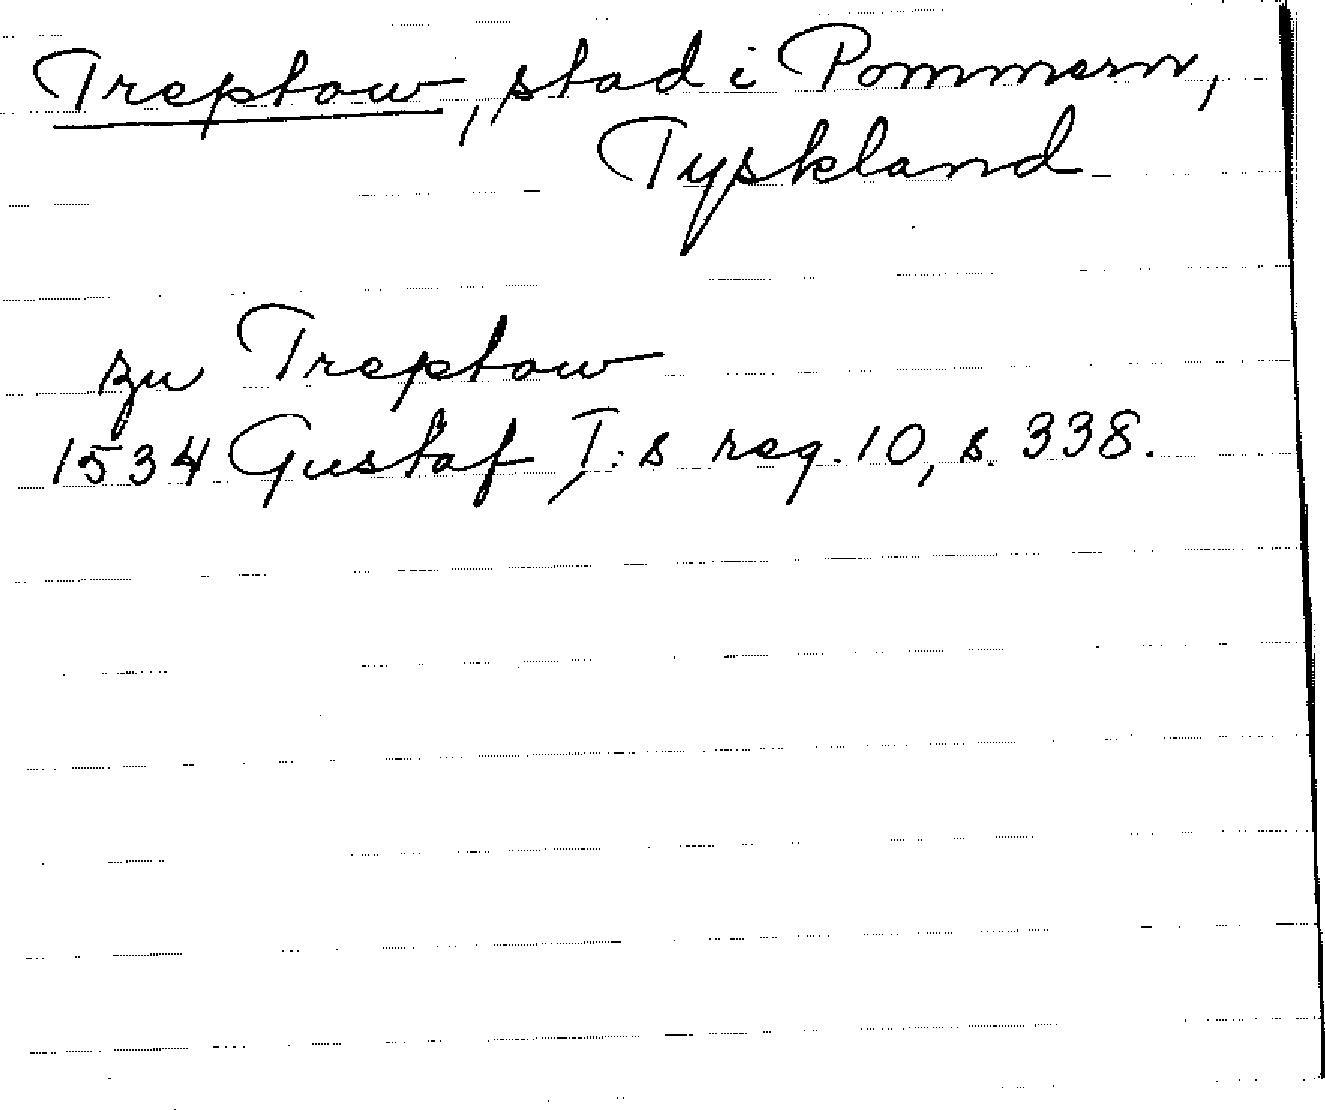 Treptow, stad i Pommern,
Tyskland
zu Treptow
1534 Gustaf I:s reg. 10, s. 338.